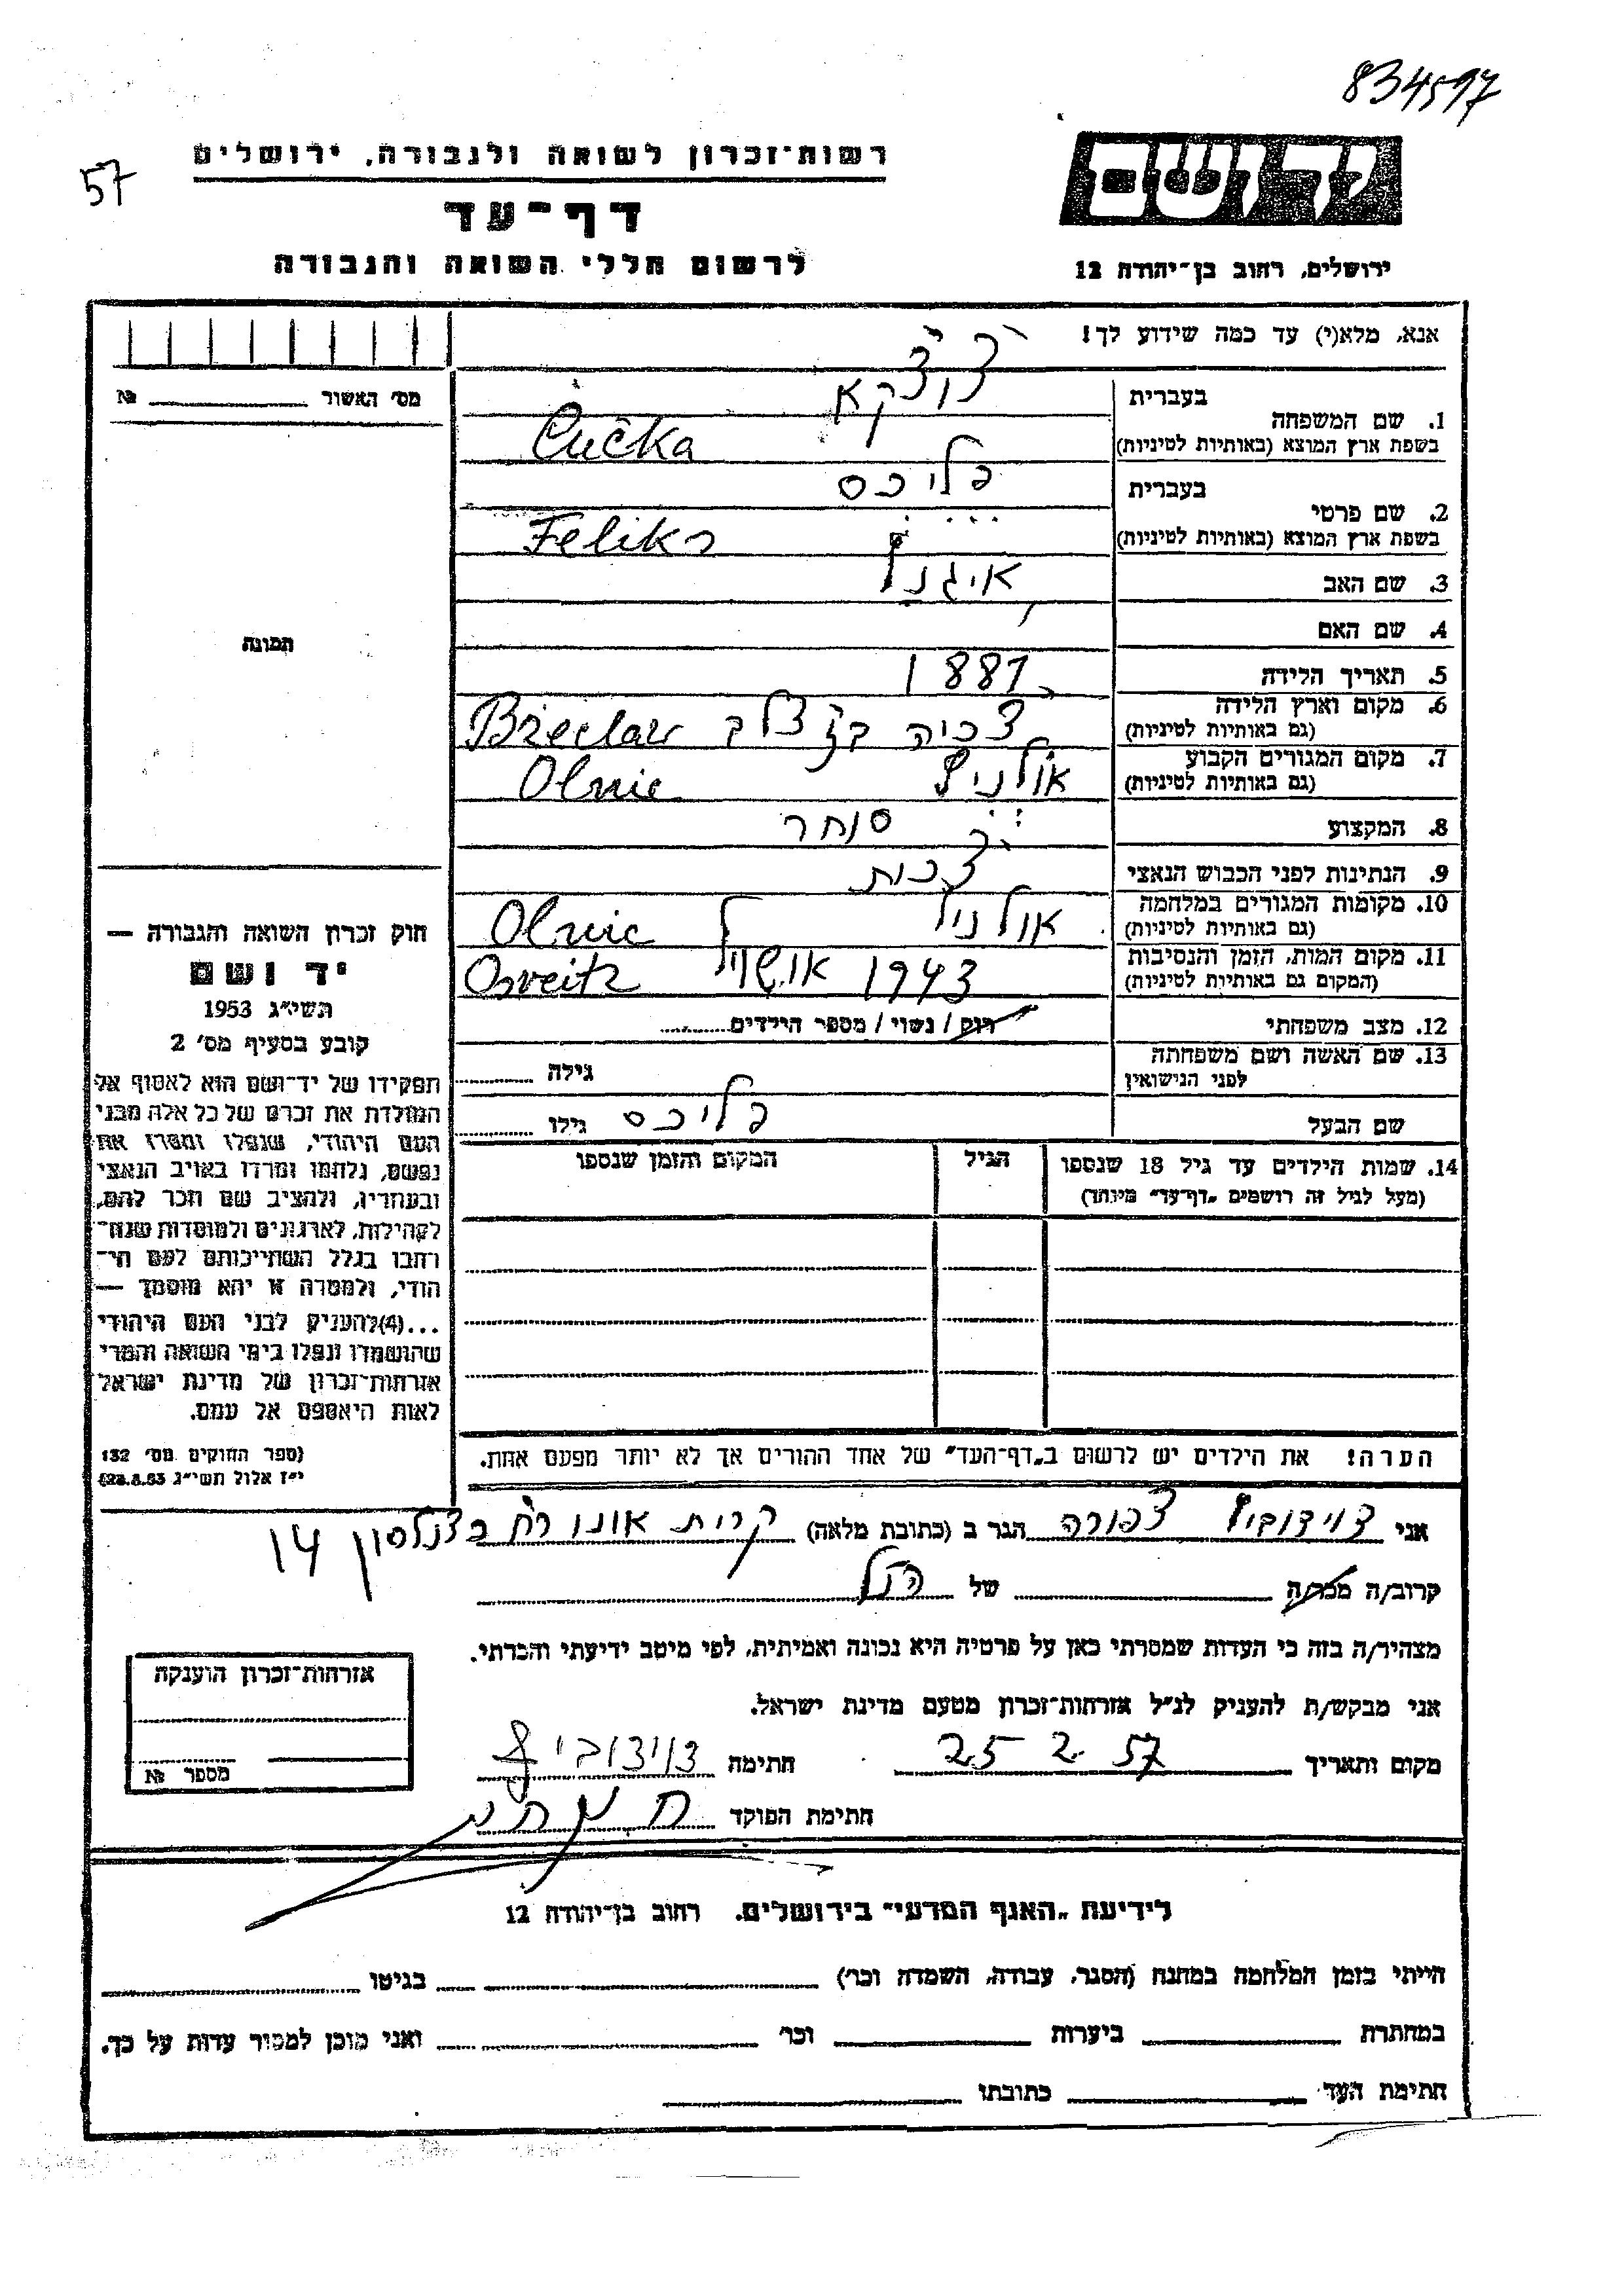 834597
57
רשות־זכרון לשואה ולגבורה, ירושלים
דף־עד
לרשום חללי השואה והגבורה
ירושלים, רחוב בן־יהודה 12
אנא, מלא(י) עד כמה שידוע לך!
מס' האשור №
תמונה
1. שם המשפחה בעברית צ'וצ'קא
בשפת ארץ המוצא (באותיות לטיניות) Čučka
2. שם פרטי בעברית פליכס
בשפת ארץ המוצא (באותיות לטיניות) Feliks
3. שם האב
4. שם האם
5. תאריך הלידה 1887
6. מקום וארץ הלידה (גם באותיות לטיניות) Břeclav
7. מקום המגורים הקבוע (גם באותיות לטיניות)
8. המקצוע סוחר
9. הנתינות לפני הכבוש הנאצי צ'כית
10. מקומות המגורים במלחמה (גם באותיות לטיניות)
11. מקום המות, הזמן והנסיבות (המקום גם באותיות לטיניות) 1943
12. מצב משפחתי רוק / נשוי / מספר הילדים
13. שם האשה ושם משפחתה לפני הנישואין גילה
שם הבעל פליכס גילו
14. שמות הילדים עד גיל 18 שנספו הגיל המקום והזמן שנספו
(מעל לגיל זה רושמים „דף־עד" מיוחד)
הערה! את הילדים יש לרשום ב„דף־העד" של אחד ההורים אך לא יותר מפעם אחת.
חוק זכרון השואה והגבורה —
יד ושם
תשי"ג 1953
קובע בסעיף מס' 2
תפקידו של יד־ושם הוא לאסוף אל
המולדת את זכרם של כל אלה מבני
העם היהודי, שנפלו ומסרו את
נפשם, נלחמו ומרדו באויב הנאצי
ובעוזריו, ולהציב שם וזכר להם,
לקהילות, לארגונים ולמוסדות שנח־
רבו בגלל השתייכותם לעם הי־
הודי, ולמטרה זו יהא מוסמך —
...(4)להעניק לבני העם היהודי
שהושמדו ונפלו בימי השואה והמרי
אזרחות־זכרון של מדינת ישראל
לאות היאספם אל עמם.
(ספר החוקים מס' 132
י"ז אלול תשי"ג 28.8.53)
אני דוידוביץ צפורה הגר ב (כתובת מלאה) קרית אונו רח' כצנלסון 14
קרוב/ה מכר/ה של הנ"ל
מצהיר/ה בזה כי העדות שמסרתי כאן על פרטיה היא נכונה ואמיתית, לפי מיטב ידיעתי והכרתי.
אני מבקש/ת להעניק לנ"ל אזרחות־זכרון מטעם מדינת ישראל.
מקום ותאריך 25 2. 57 חתימה דוידוביץ
חתימת הפוקד
אזרחות־זכרון הוענקה
מספר №
לידיעת „האגף המדעי" בירושלים, רחוב בן־יהודה 12
הייתי בזמן המלחמה במחנה (הסגר, עבודה, השמדה וכו') בגיטו
במחתרת ביערות וכו' ואני מוכן למסור עדות על כך.
חתימת העד כתובתו